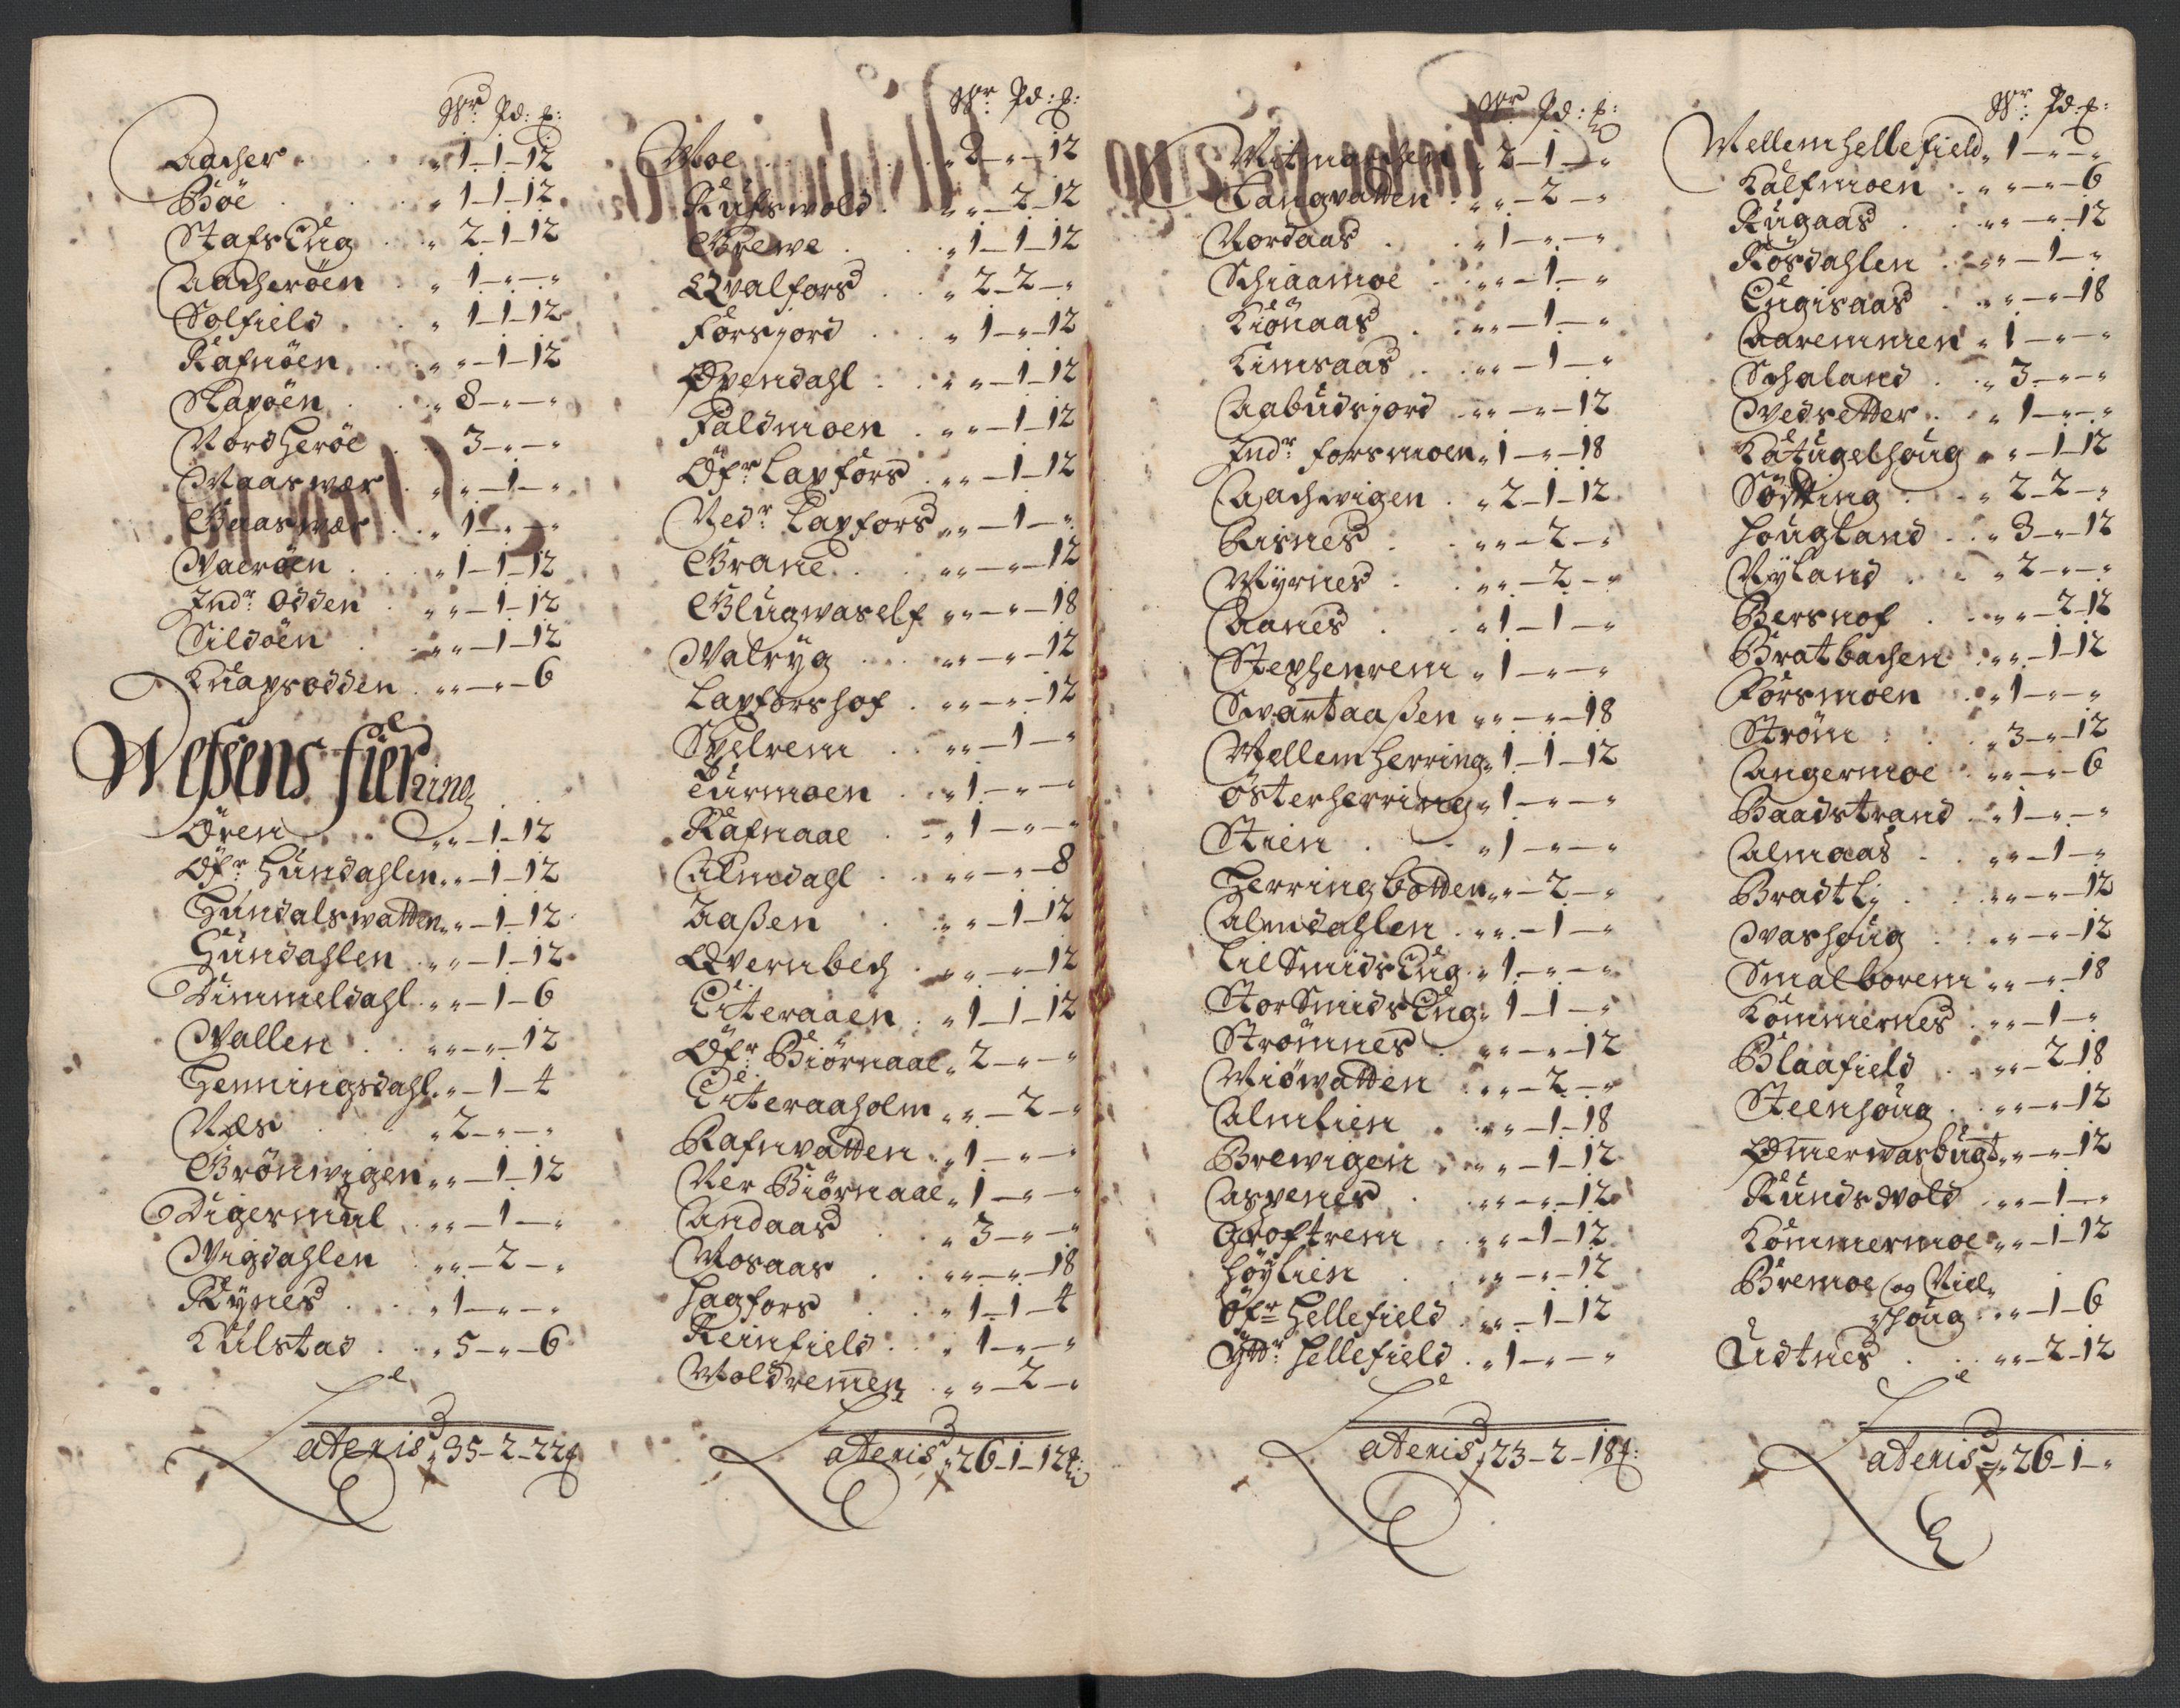 Wr Pd: f:
Aacher „ 1–1–12
Böe „ 1–1–12
Stafslüg „ 2–1–12
Aacheröen „ 1–„–„
Solfield „ 1–1–12
Rafnöen „ „–1–12
Slapöen „ 8–„–„
Nordheröe 3–„–„
Maaswær „ „–1–„
Gaaswær „ 1–„–„
Væröen „ 1–1–12
Indr Odden „ „–1–12
Sildöen „ „–1–12
Knapsodden „ „–„–6
Wefsens fierring
Ören „ „–1–12
Öfr Hundahlen „ „–1–12
Hundalswatten „ „–1–12
Hundahlen „ „–1–12
Dimmeldahl „ „–1–6
Vallen „ „–„–12
Hemmingsdahl „ „–1–4
Næs „ 2–„–„
Grönwigen „ „–1–12
Digermul „ „–1–„
Vigdahlen „ „–2–„
Rynes „ 1–„–„
Kulstad „ 5–„–6
Lateris „ 35–2–22f
Wr Pd: f:
Moe „ 2–„–12
Rufswold „ „–2–12
Grewe „ 1–1–12
Qvalfors „ 2–2–„
Forsjord „ 1–„–12
Övendahl „ „–1–12
Faldmoen „ „–1–12
Öfr Lapfors „ „–1–12
Nedr Lapfors „ „–1–„
Grane „ „–„–12
Glugwaself „ „–„–18
Valryg „ „–„–12
Lapforshof „ „–„–12
Svelrem „ „–1–„
Turmoen „ 1–„–„
Rafnaae „ 1–„–„
Almdahl „ „–„–8
Aaßen „ „–1–12
Qvernbech „ „–„–12
Luteraaen „ 1–1–12
Öfr Biörnaae „ 2–„–„
Luteraaholm „ „–2–„
Rafnvatten „ 1–„–„
Ner Biörnaae „ 1–„–„
Andaas „ 3–„–„
Mosaas „ „–„–18
Hagfors „ 1–1–4
Reinfield „ 1–„–„
Moldremen „ „–2–„
Lateris „ 26–1–12f:
Wr Pd: f:
Vitmachen „ 2–1–„
Langvatten „ „–2–„
Nordaas „ 1–„–„
Schiaamoe „ „–1–„
Kiönaas „ „–1–„
Kimsaas „ „–1–„
Aabudsjord „ „–„–12
Indr forsmoen „ 1–„–18
Aachwigen „ 2–1–12
Risnes „ „–2–„
Myrnes „ „–2–„
Aanes „ 1–1–„
Stephenrem „ 1–„–„
Swartaaßen „ „–„–18
Mellem herring „ 1–1–12
Österherring „ 1–„–„
Stien „ 1–„–„
Herringbotten „ „–2–„
Almdahlen „ „–1–„
Lil Smidslug „ 1–„–„
Stor Smidslug „ 1–1–„
Strömnes „ „–„–12
Miöwatten „ „–2–„
Almlien „ „–1–18
Brewigen „ „–1–12
Aspenes „ „–„–12
Groftrem „ „–1–12
Höylien „ „–„–12
Öfr Hellefield „ „–1–12
Yttr Hellefield „ 1–„–„
Lateris „ 23–2–18f:
Wr Pd f:
Mellem hellefield „ 1–„–„
Kalfmoen „ „–„–6
Rugaas „ „–„–12
Rösdahlen „ „–1–„
Lugisaas „ „–„–18
Aaremmen „ 1–„–„
Schaland „ 3–„–„
Vedsetter „ 1–„–„
Katugelhoug „ „–1–12
Sötting „ 2–2–„
Hougland „ 3–„–12
Nyland „ 2–„–„
Bershof „ „–2–12
Bratbachen „ „–1–12
Forsmoen „ 1–„–„
Ström „ 3–„–12
Angermoe „ „–„–6
Baadstrand „ 1–„–„
Almaas „ „–1–„
Bradtlj „ „–„–12
Vashoug „ „–„–12
Smalborem „ „–„–18
Kommernes „ „–1–„
Blaafield „ „–2–18
Steenhoug „ „–„–12
Ömerwasbugt „ „–„–12
Kunds Vold „ „–1–„
Kommermoe „ „–1–12
Bremoe og Viel„
schoug „ „–1–6
Ludtnes „ „–2–12
Lateris „ 26–1–„